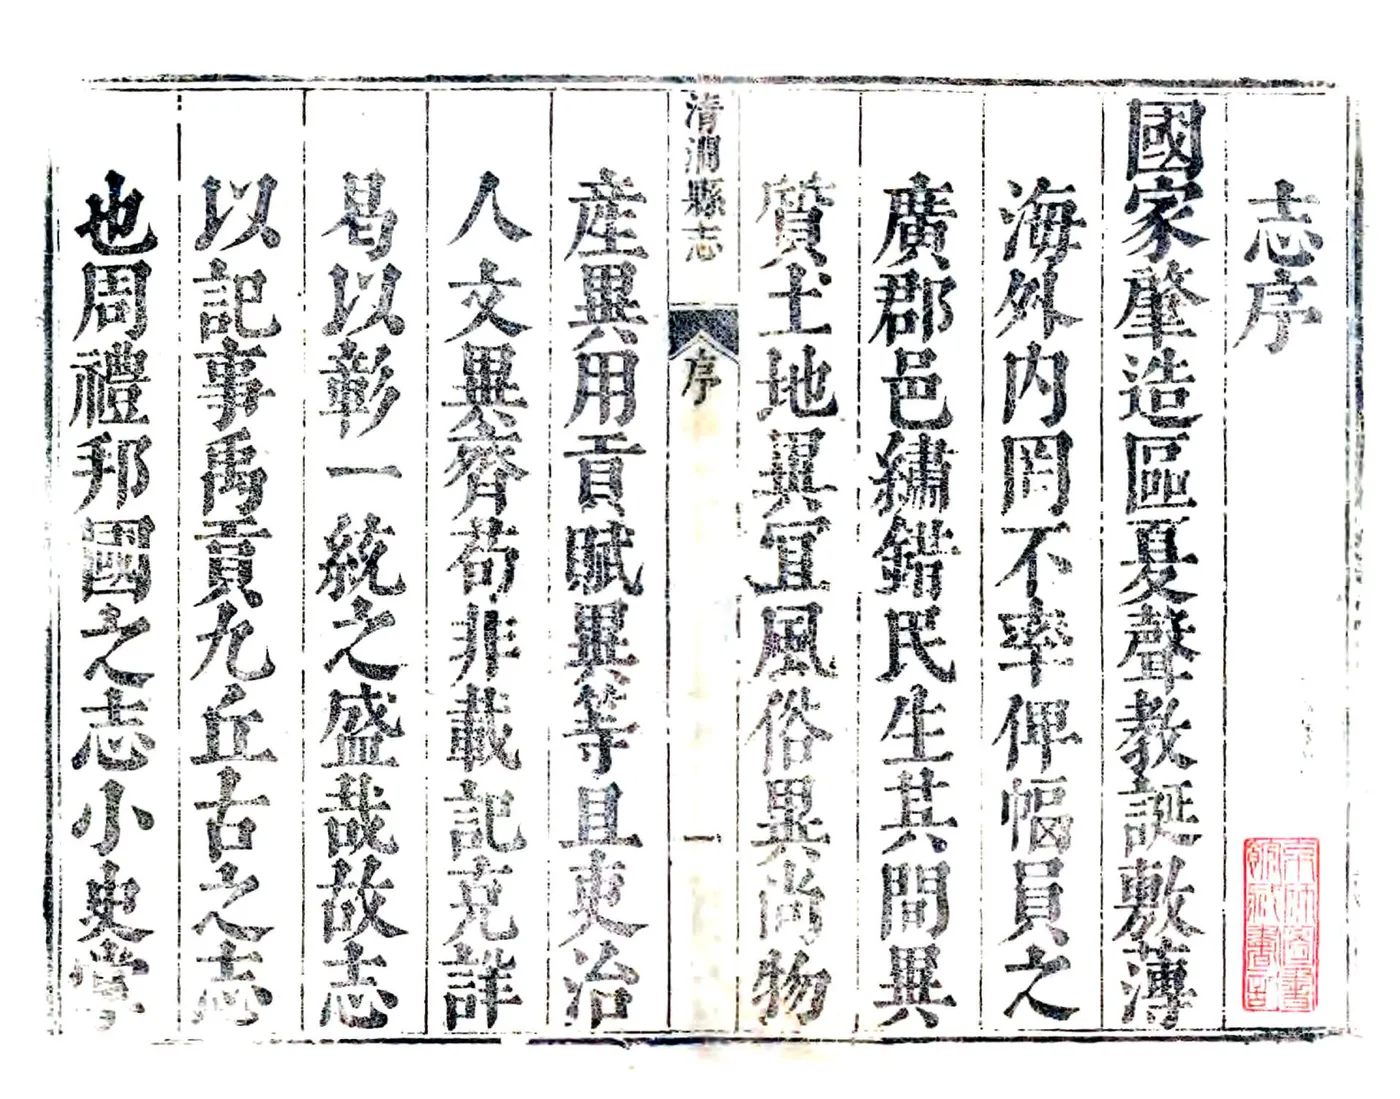 志序
國家肇造區夏聲教誕敷薄
海外內罔不率俾幅員之
廣郡邑繡錯民生其間異
質土地異宜風俗異尚物
清澗縣志
序
一
産異用貢賦異等且吏治
人文異齊苟非載記克詳
曷以彰一統之盛哉故志
以記事禹貢九丘古之志
也周禮邦國之志小史掌